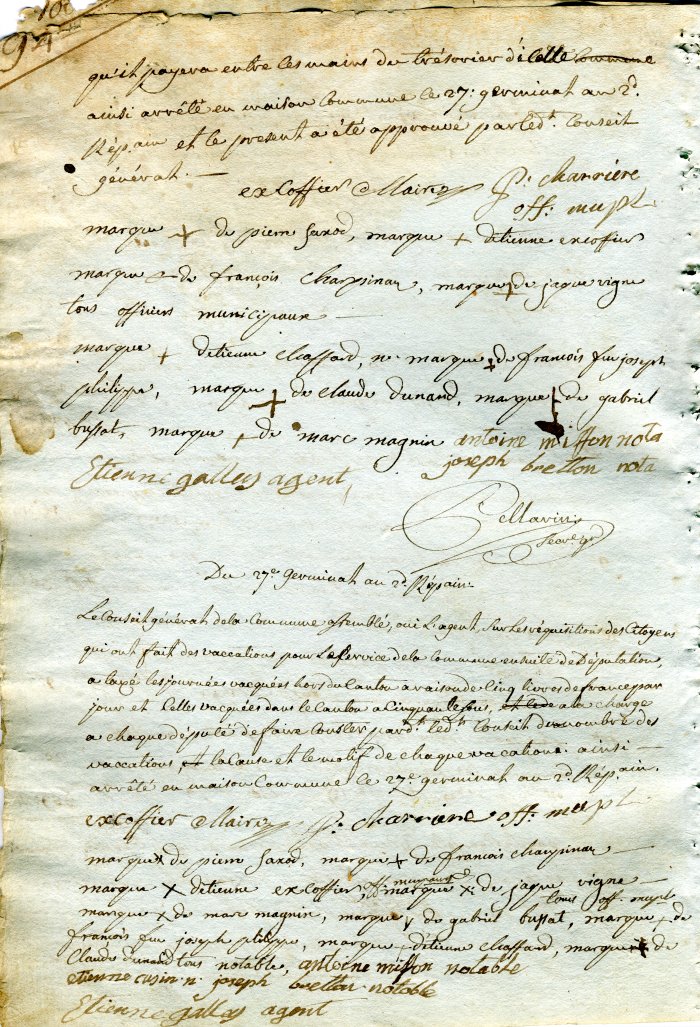 94
qu'il payera entre les mains du trésorier d'icelle commune
ainsi arrêté en maison commune le 27: germinal an 2d.
Rép.ain et le present a été approuvé par led.t Conseil
général. —
excoffier Maire P. charriere
off. mupl
marque + de pierre saxod, marque + detienne excoffier
marque + de françois Charpinaz, marque + de jaque vigne
tous officiers municipaux —
marque + detienne Chaffard, n. marque + de francois feu joseph
philippe, marque + de Claude Dunand, marque + de gabriel
bussat, marque + de marc magnin antoine miffon nota
joseph bretton nota
Etienne galley agent
Pellarin
Secre. gr.
Du 27e Germinal an 2d. Répain.
Le Conseil général de la Commune assemblé, oui L'agent, sur Les réquisitions des Citoyens
qui ont fait des vaccations pour Le service de la commune ensuite de Députation,
a taxé les journées vacquées hors du Canton a raison de Cinq livres de france par
jour et Celles vacquées dans le Canton a Cinquante sous, a la charge
a chaque député de faire conster pard.t led.t Conseil du nombre des
vaccations, et la Cause et le motif de chaque vacation. ainsi —
arrêté en maison Commune le 27e germinal an 2d. Rép.ain.
excoffier Maire P. charriere off. mupl.
marque + de pierre saxod, marque + de françois Charpinaz —
marque + detienne excoffier, marque + de jaque vigne
tous off. mupl
marque + de marc magnin, marque + de gabriel bussat, marque + de
francois feu joseph philippe, marque + d'étienne Chaffard, marque + de
Claude dunand tous notable, antoine miffon notable
etienne cusin n. joseph bretton notable
Etienne galley agent